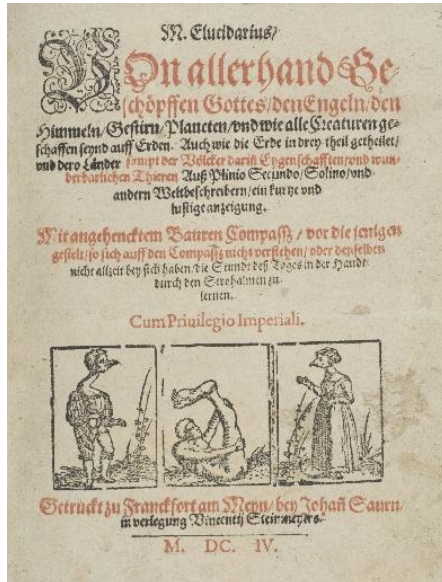 M. Elucidarius/
VOn allerhand Ge-
schöpffen Gottes/den Engeln/den
Himmeln/Gestirn/Planeten/vnd wie alle Creaturen ge-
schaffen seynd auff Erden. Auch wie die Erde in drey theil getheilet/
vnd dero Länder sampt der Völcker darin Eygenschafften/vnd wun-
derbarlichen Thieren Auß Plinio Secundo/Solino/vnd
andern Weltbeschreibern/ein kurtze vnd
lustige anzeigung.
Mit angehencktem Bauren Compassz/vor die jenigen
gestelt/so sich auff den Compassz nicht verstehen/oder denselben
nicht allzeit bey sich haben/die Stundt deß Tages in der Handt
durch den Strohalmen zu
lernen.
Cum Priuilegio Imperiali.
Getruckt zu Franckfort am Meyn/bey Johañ Saurn/
in verlegung Vincentij Steinmeyers.
M. DC. IV.